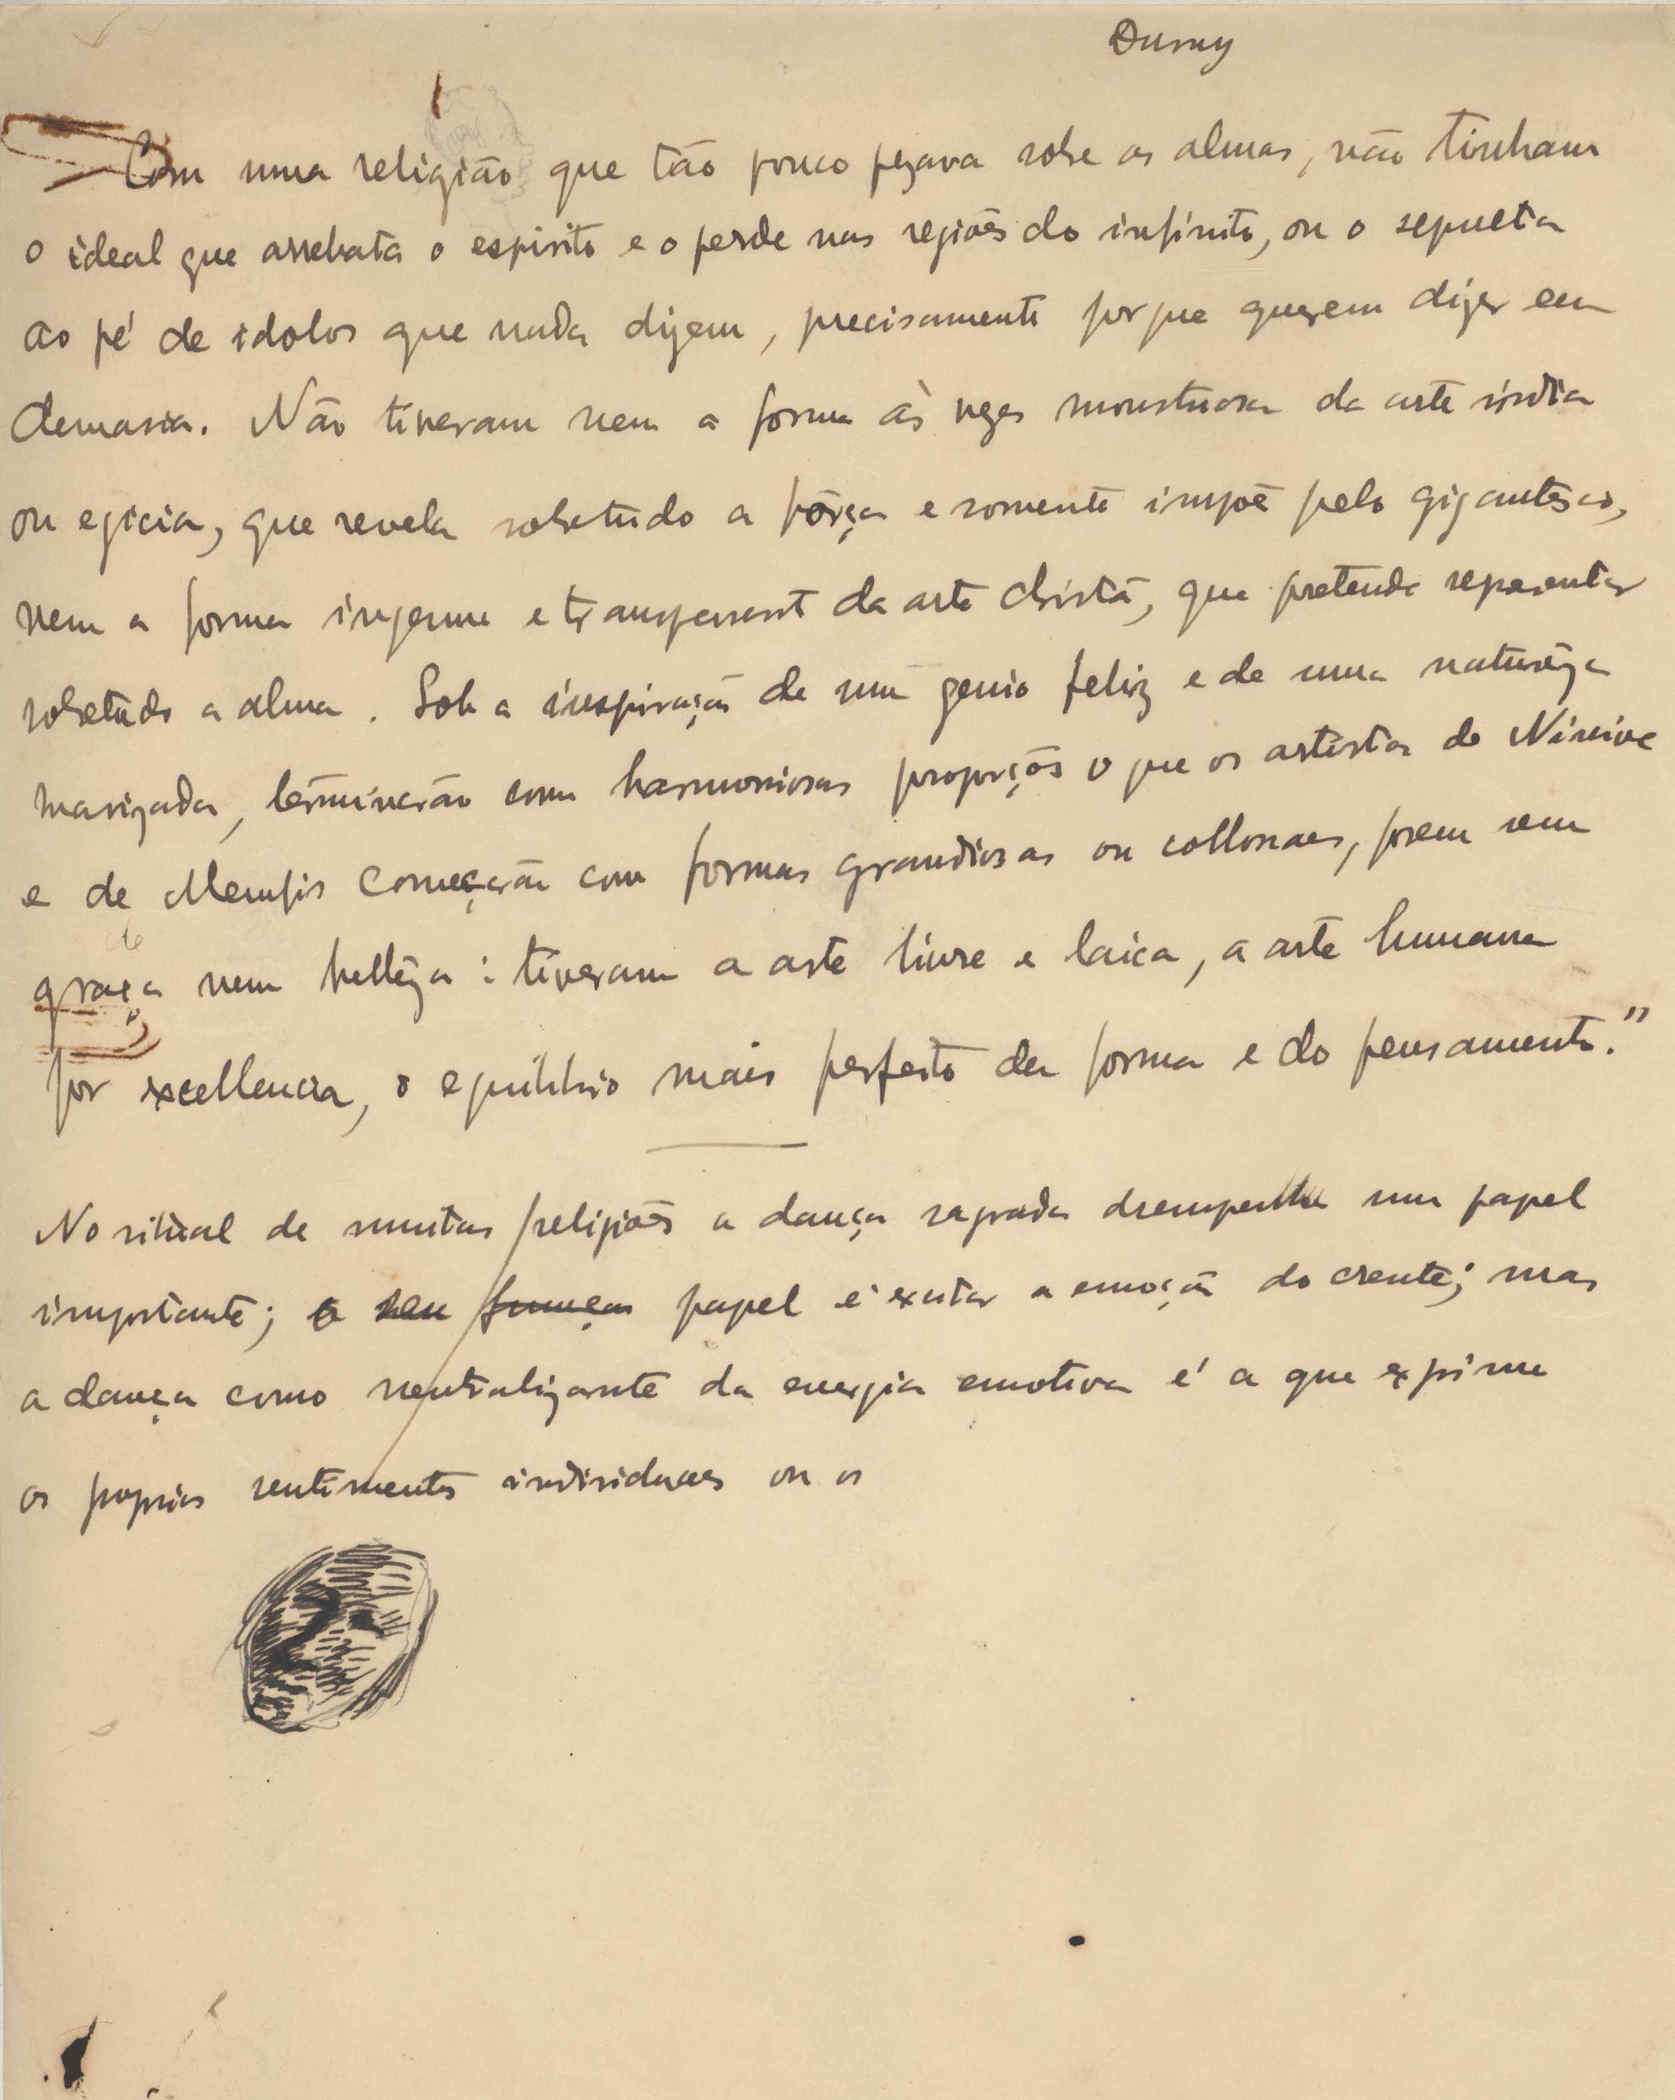 Duruy
Com uma religião que tão pouco pezava sobre as almas, não tinham
o ideal que arrebata o espirito e o perde nas regiões do infinito, ou o sepulta
ao pé de idolos que nada dizem, precisamente porque querem dizer em
demasia. Não tiveram nem a forma às vezes monstruosa da arte india
ou egicia, que revela sobretudo a fôrça e somente impoē pelo gigantêsco,
nem a forma ingenua e transparent da arte christã, que pretende representar
sobretudo a alma. Sob a inspiração de um genio feliz e de uma naturêza
, terminarão com harmoniosas proporções o que os artistas de Ninive
e de Memfis começarão com formas grandiosas ou collossaes, porem sem
graça nem bellêza: tiveram a arte livre e laica, a arte humana
por excellencia, o equilibrio mais perfeito da forma e do pensamento."
No ritual de muitas religiões a dança sagrada desempenha um papel
importante; o seu função papel é exitar a emoção do crente; mas
a dança como neutralizante da energia emotiva é a que exprime
os proprios sentimentos individuaes ou os